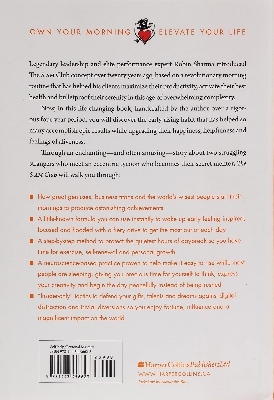 OWN YOUR MORNING ELEVATE YOUR LIFE
Legendary leadership and elite performance expert Robin Sharma introduced
The 5AM Club concept over twenty years ago, based on a revolutionary morning
routine that has helped his clients maximize their productivity, activate their best
health and bulletproof their serenity in this age of overwhelming complexity.
Now, in this life-changing book, handcrafted by the author over a rigor-
ous four-year period, you will discover the early-rising habit that has helped so
many accomplish epic results while upgrading their happiness, helpfulness and
feelings of aliveness.
Through an enchanting—and often amusing—story about two struggling
strangers who meet an eccentric tycoon who becomes their secret mentor, The
5AM Club will walk you through:
How great geniuses, business titans and the world's wisest people start their
mornings to produce astonishing achievements
A little-known formula you can use instantly to wake up early feeling inspired,
focused and flooded with a fiery drive to get the most out of each day
A step-by-step method to protect the quietest hours of daybreak so you have
time for exercise, self-renewal and personal growth
A neuroscience-based practice proven to help make it easy to rise while most
people are sleeping, giving you precious time for yourself to think, express
your creativity and begin the day peacefully instead of being rushed
"Insider-only" tactics to defend your gifts, talents and dreams against digital
distraction and trivial diversions so you enjoy fortune, influence and a
magnificent impact on the world
HarperCollinsPublishersLtd
WWW.HARPERCOLLINS.CA